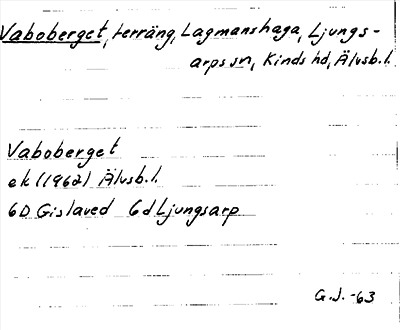 Vaboberget, terräng, Lagmanshaga, Ljungs-
arps sn, Kinds hd, Älvsb.l.
Vaboberget
ek (1962) Älvsb.l.
6D Gislaved 6d Ljungsarp
G.J. -63